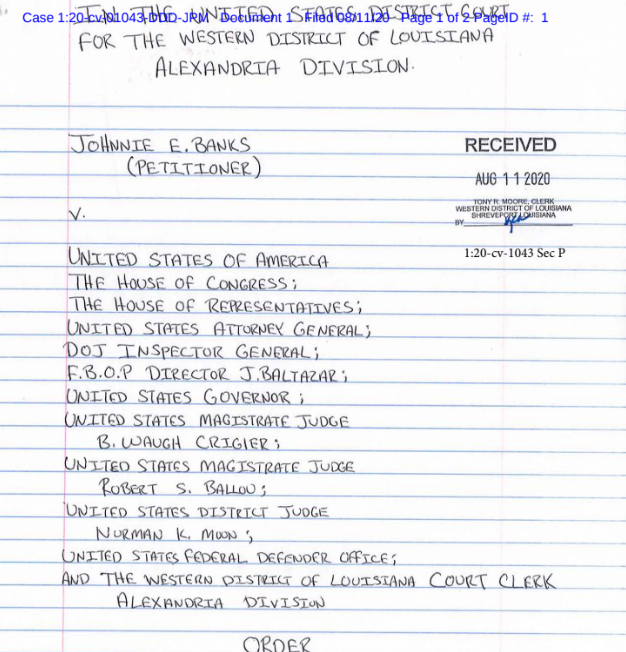 Case 1:20-cv-01043-DDD-JPM Document 1 Filed 08/11/20 Page 1 of 2 PageID #: 1
IN THE UNITED STATES DISTRICT COURT
FOR THE WESTERN DISTRICT OF LOUISIANA
ALEXANDRIA DIVISION.
JOHNNIE E. BANKS
(PETITIONER)
RECEIVED
AUG 11 2020
TONY R. MOORE, CLERK
WESTERN DISTRICT OF LOUISIANA
SHREVEPORT, LOUISIANA
BY
1:20-cv-1043 Sec P
V.
UNITED STATES OF AMERICA
THE HOUSE OF CONGRESS;
THE HOUSE OF REPRESENTATIVES;
UNITED STATES ATTORNEY GENERAL;
DOJ INSPECTOR GENERAL;
F.B.O.P DIRECTOR J.BALTAZAR;
UNITED STATES GOVERNOR;
UNITED STATES MAGISTRATE JUDGE
B. WAUGH CRIGIER;
UNITED STATES MAGISTRATE JUDGE
ROBERT S. BALLOU;
UNITED STATES DISTRICT JUDGE
NORMAN K. MOON;
UNITED STATES FEDERAL DEFENDER OFFICE;
AND THE WESTERN DISTRICT OF LOUISIANA COURT CLERK
ALEXANDRIA DIVISION
ORDER